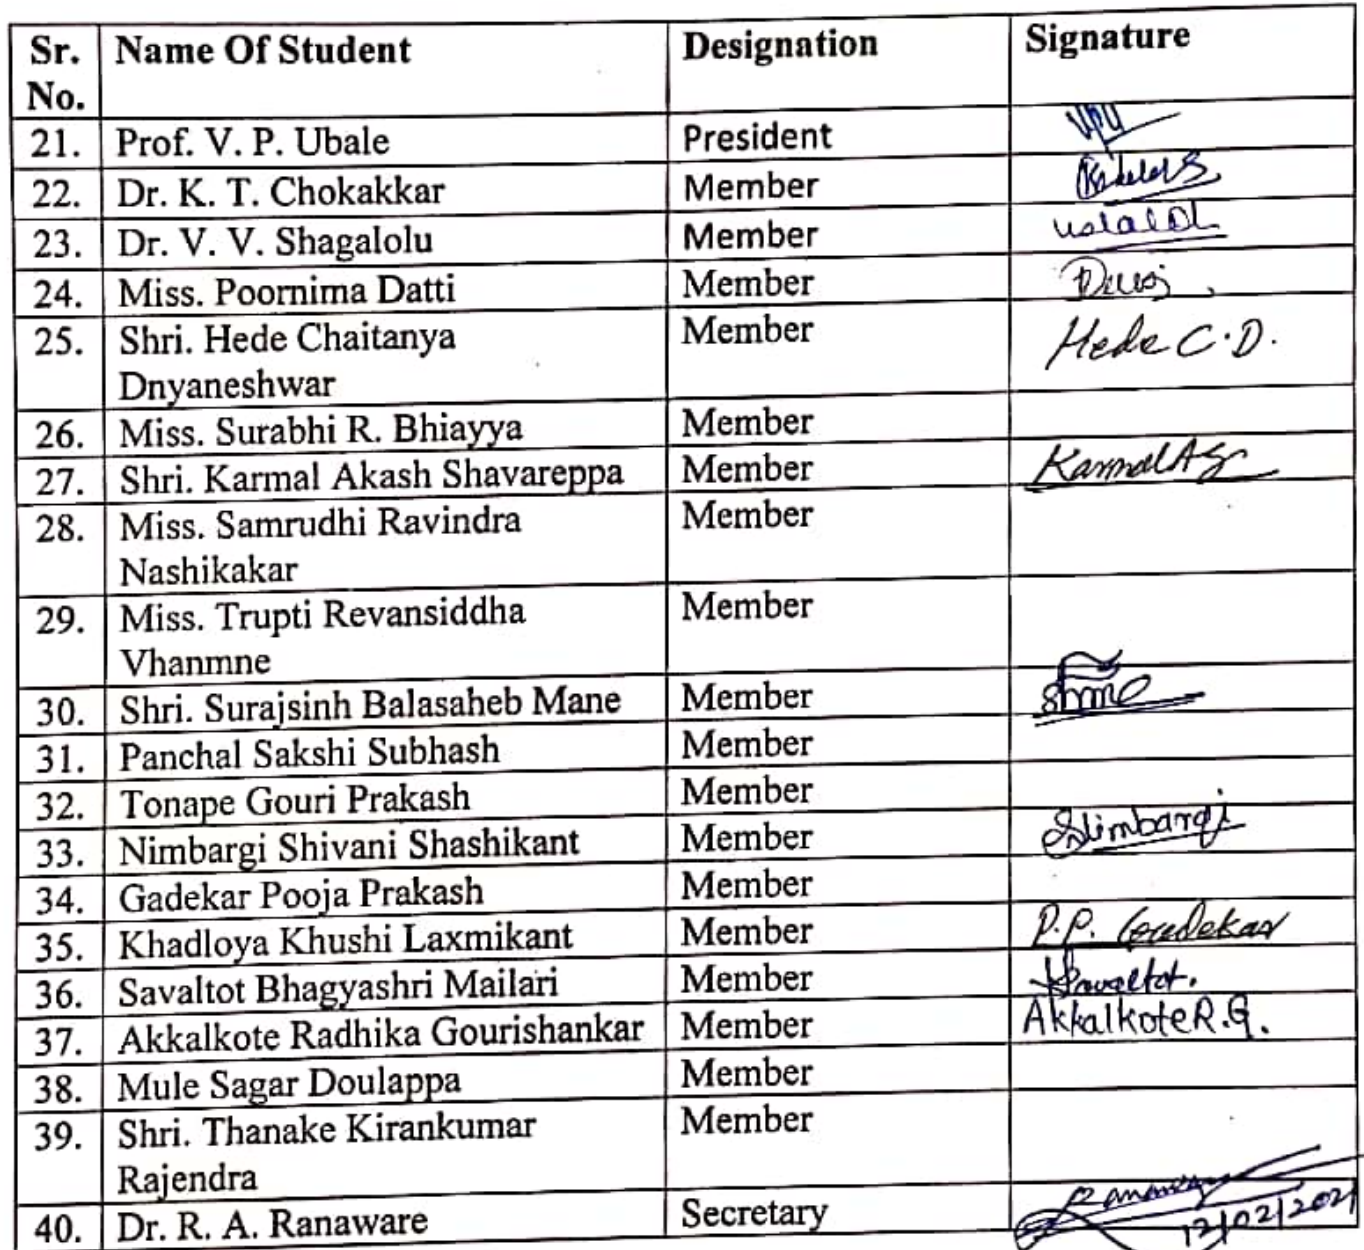 Sr. No. Name Of Student Designation Signature
21. Prof. V. P. Ubale President VPU
22. Dr. K. T. Chokakkar Member
23. Dr. V. V. Shagalolu Member
24. Miss. Poornima Datti Member
25. Shri. Hede Chaitanya Member Hede C.D.
Dnyaneshwar
26. Miss. Surabhi R. Bhiayya Member
27. Shri. Karmal Akash Shavareppa Member Karmal AS
28. Miss. Samrudhi Ravindra Member
Nashikakar
29. Miss. Trupti Revansiddha Member
Vhanmne
30. Shri. Surajsinh Balasaheb Mane Member
31. Panchal Sakshi Subhash Member
32. Tonape Gouri Prakash Member
33. Nimbargi Shivani Shashikant Member SNimbargi
34. Gadekar Pooja Prakash Member
35. Khadloya Khushi Laxmikant Member P.P. Gadekar
36. Savaltot Bhagyashri Mailari Member
37. Akkalkote Radhika Gourishankar Member Akkalkote R.G.
38. Mule Sagar Doulappa Member
39. Shri. Thanake Kirankumar Member
Rajendra
40. Dr. R. A. Ranaware Secretary 12/02/2021